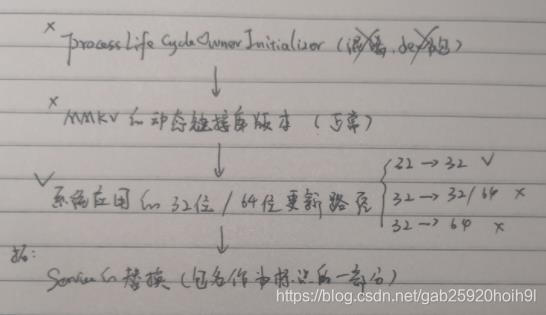 × processLifeCycleOwnerInitializer (混淆、dex分包)
↓
× MMKV的动态链接库版本 (正常)
↓
√ 系统应用的32位/64位更新路径
32 → 32 √
32 → 32/64 ×
32 → 64 ×
↓
Service的替换 (包名作为标识的一部分)
https://blog.csdn.net/gab25920hoih9l